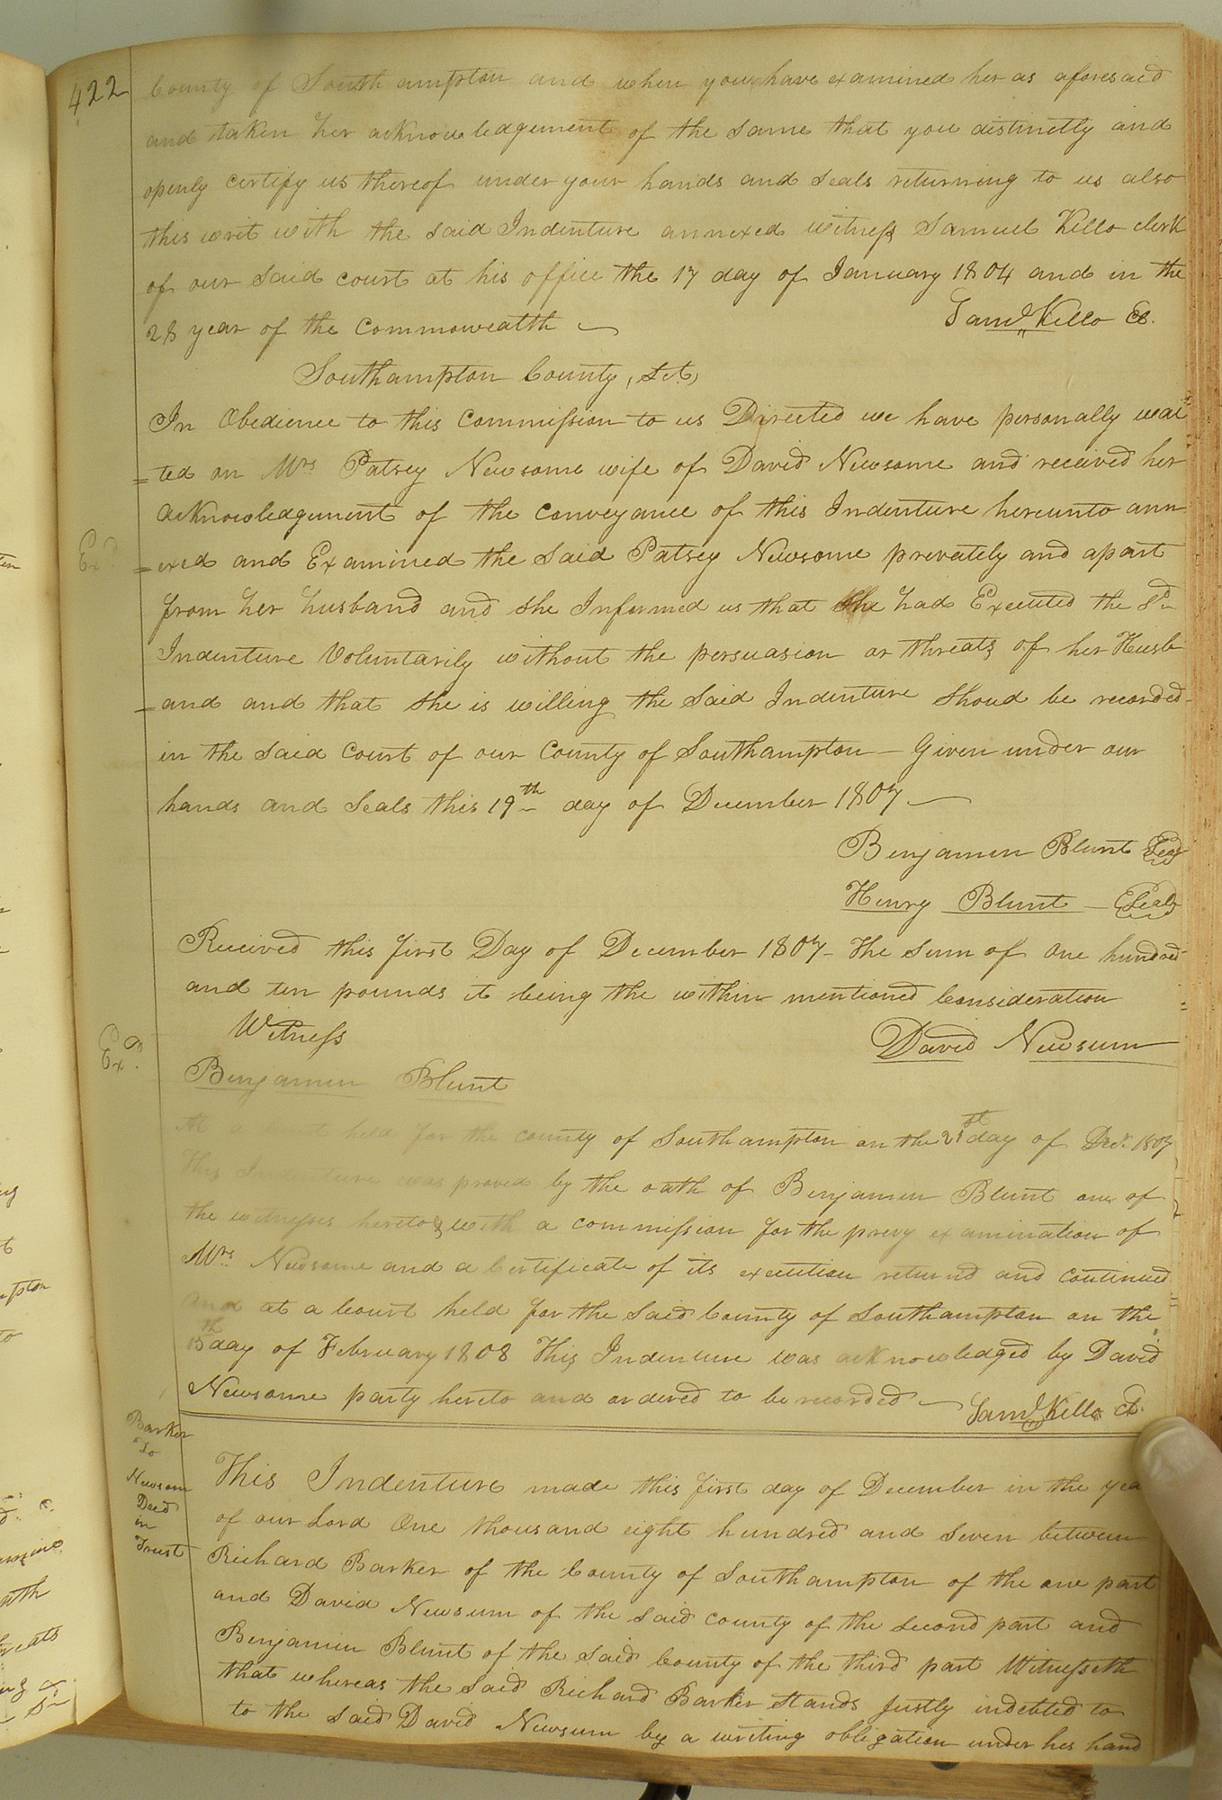 422
County of Southampton and when you have examined her as aforesaid
and taken her acknowledgement of the same that you distinctly and
openly certify us thereof under your hands and seals returning to us also
this writ with the said Indenture annexed witness Samuel Kello clerk
of our said court at his office the 17 day of January 1804 and in the
28 year of the commonwealth
Saml. Kello Cl.
Southampton County, Sct,
In Obedience to this commission to us Directed we have personally wai
=ted on Mrs Patsey Newsome wife of David Newsome and received her
acknowledgement of the conveyance of this Indenture hereunto ann
=exed and Examined the said Patsey Newsome privately and apart
from her husband and she Informed us that she had Executed the sd
Indenture Voluntarily without the persuasion or threats of her Husb
-and and that she is willing the said Indenture shoud be recorded
in the said Court of our County of Southampton - Given under our
hands and seals this 19th day of December 1807
Benjamin Blunt Seal
Henry Blunt - Seal
Received this first Day of December 1807 - the sum of one hundred
and ten pounds it being the within mentioned Consideration
Witness
David Newsum
Exd.
Benjamin Blunt
At a Court held for the county of Southampton on the 21st day of Decr. 1807
This Indenture was proved by the oath of Benjamin Blunt one of
the witnesses hereto & with a commission for the privy examination of
Mrs. Newsome and a Certificate of its execution returnd and continued
And at a Court held for the said County of Southampton on the
15th day of February 1808 This Indenture was acknowledged by David
Newsome party hereto and ordered to be recorded
Saml. Kello Cl.
Barker
To
Newsom
Deed
in
Trust
This Indenture made this first day of December in the yea
of our Lord One thousand eight hundred and seven between
Richard Barker of the County of Southampton of the one part
and David Newsum of the said county of the second part and
Benjamin Blunt of the said County of the third part Witnesseth
that whereas the said Richard Barker stands justly indebted to
to the said David Newsum by a writing obligation under his hand